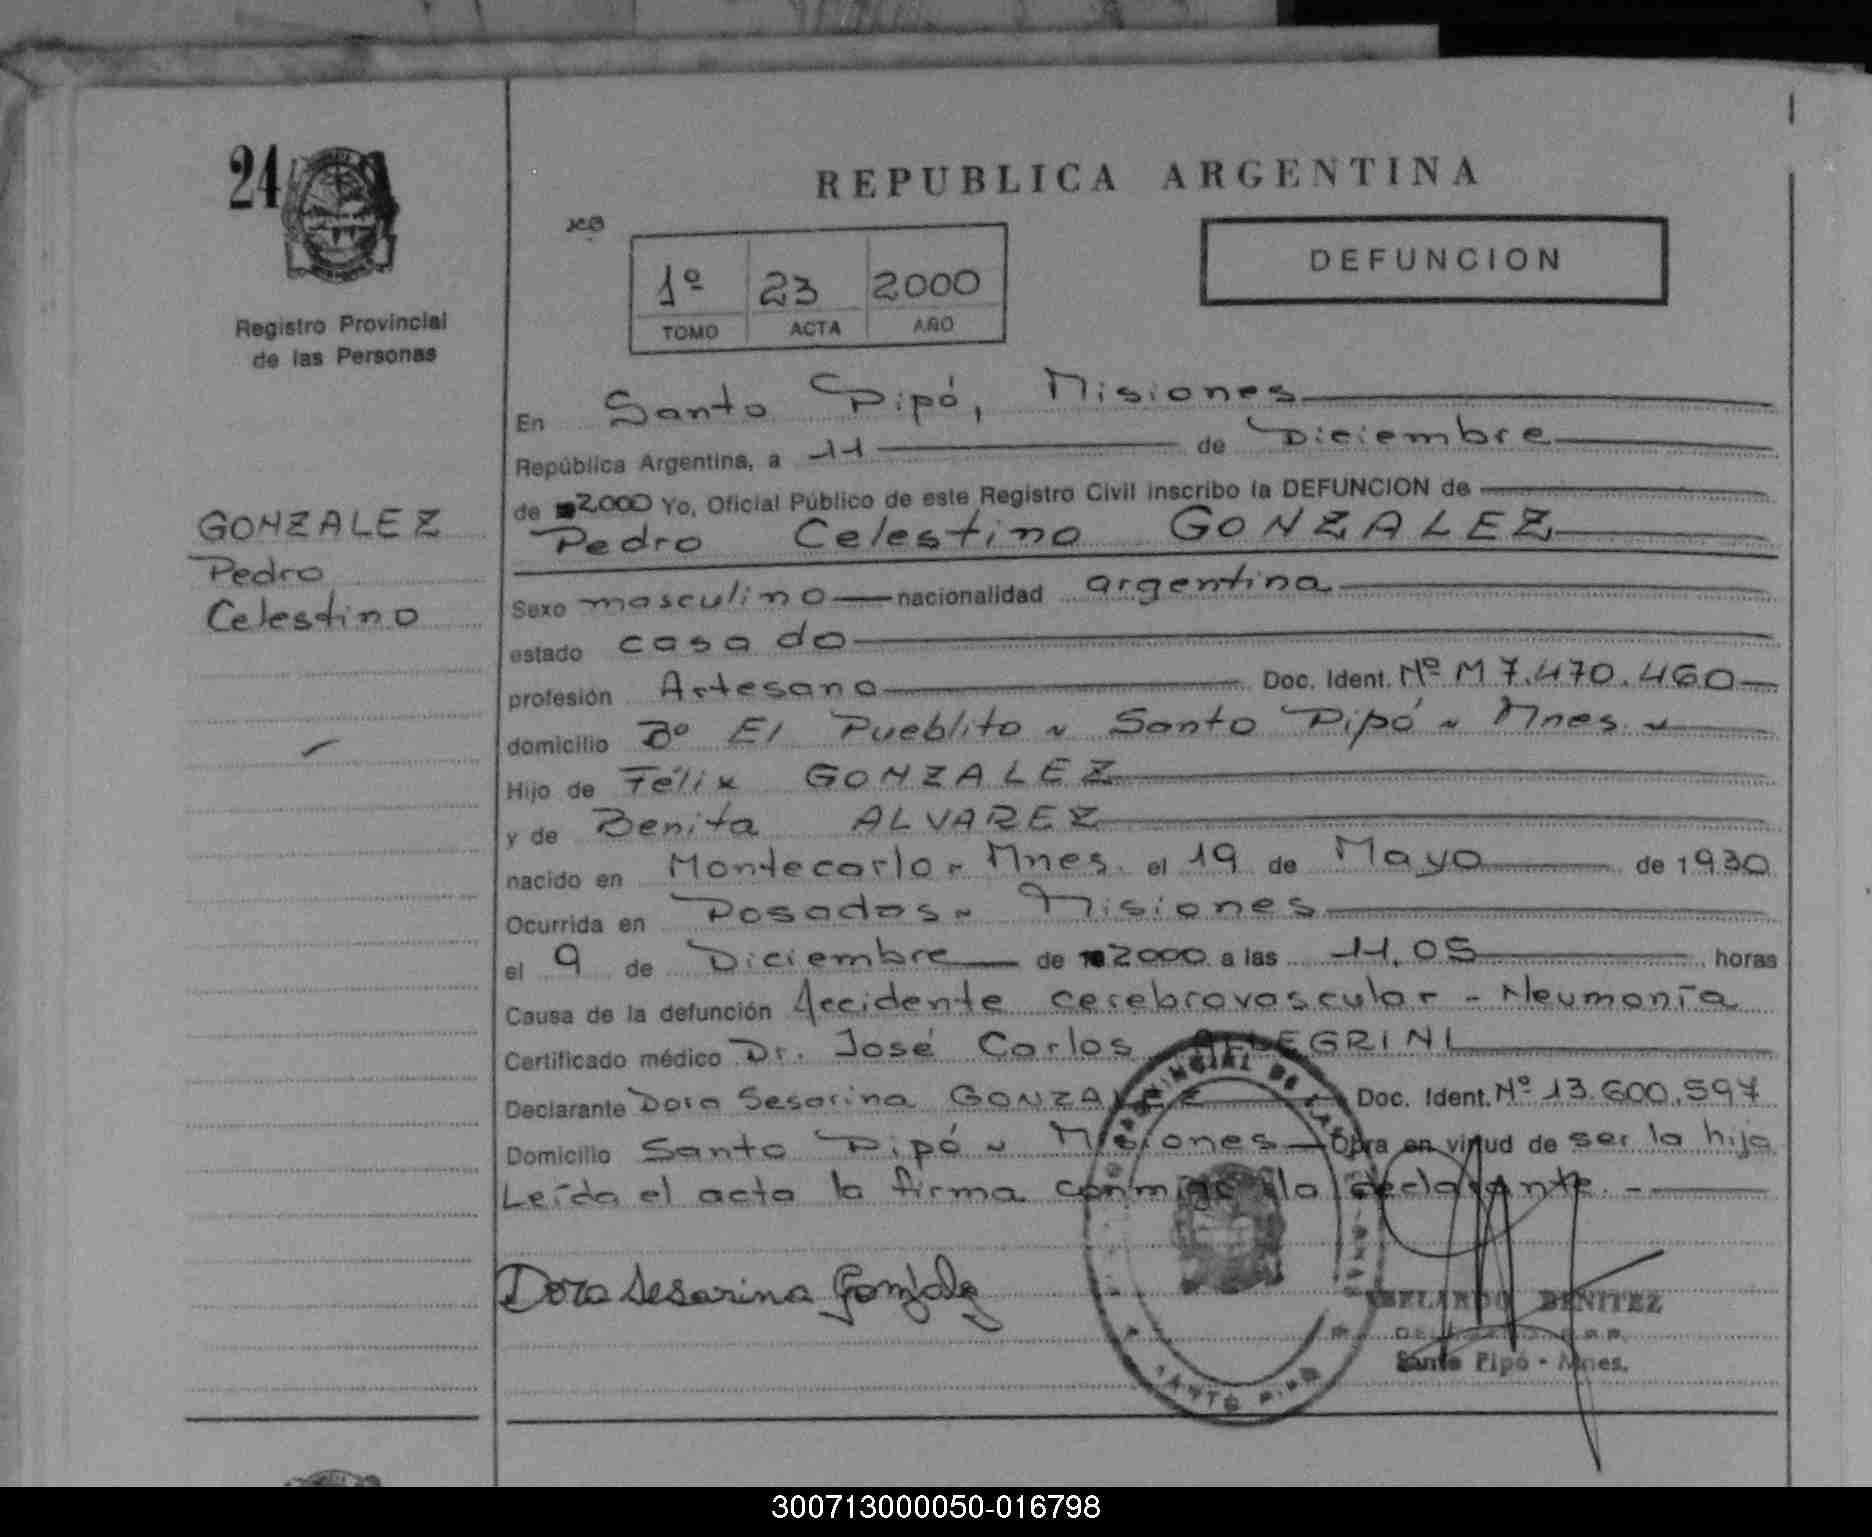 24
REPUBLICA ARGENTINA
DEFUNCION
1º 23 2000
TOMO ACTA AÑO
Registro Provincial
de las Personas
GONZALEZ
Pedro
Celestino
En Santo Pipó, Misiones
República Argentina, a 11 de Diciembre
de 2000 Yo, Oficial Público de este Registro Civil inscribo la DEFUNCION de
Pedro Celestino GONZALEZ
Sexo masculino nacionalidad argentina
estado casado
profesión Artesano Doc. Ident. Nº M 7.470.460
domicilio Bº El Pueblito - Santo Pipó - Mnes. -
Hijo de Félix GONZALEZ
y de Benita ALVAREZ
nacido en Montecarlo - Mnes. el 19 de Mayo de 1930
Ocurrida en Posadas - Misiones
el 9 de Diciembre de 2000 a las 11,05 horas
Causa de la defunción Accidente cerebrovascular - Neumonía
Certificado médico Dr. José Carlos ALEGRINI
Declarante Dora Sesarina GONZALEZ Doc. Ident. Nº 13.600.597
Domicilio Santo Pipó - Misiones Obra en virtud de ser la hija
Leída el acta la firma conmigo la declarante. -
Dora Sesarina Gonzalez
ABELARDO BENITEZ
Santo Pipó - Mnes.
SANTO PIPO
300713000050-016798